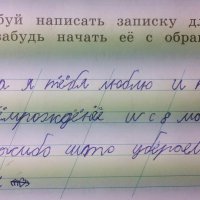 буй написать записку дл
забудь начать её с обращ
а я тёбя люблю и п
ёмрожденёё и с 8 мо
асибо што убероеш